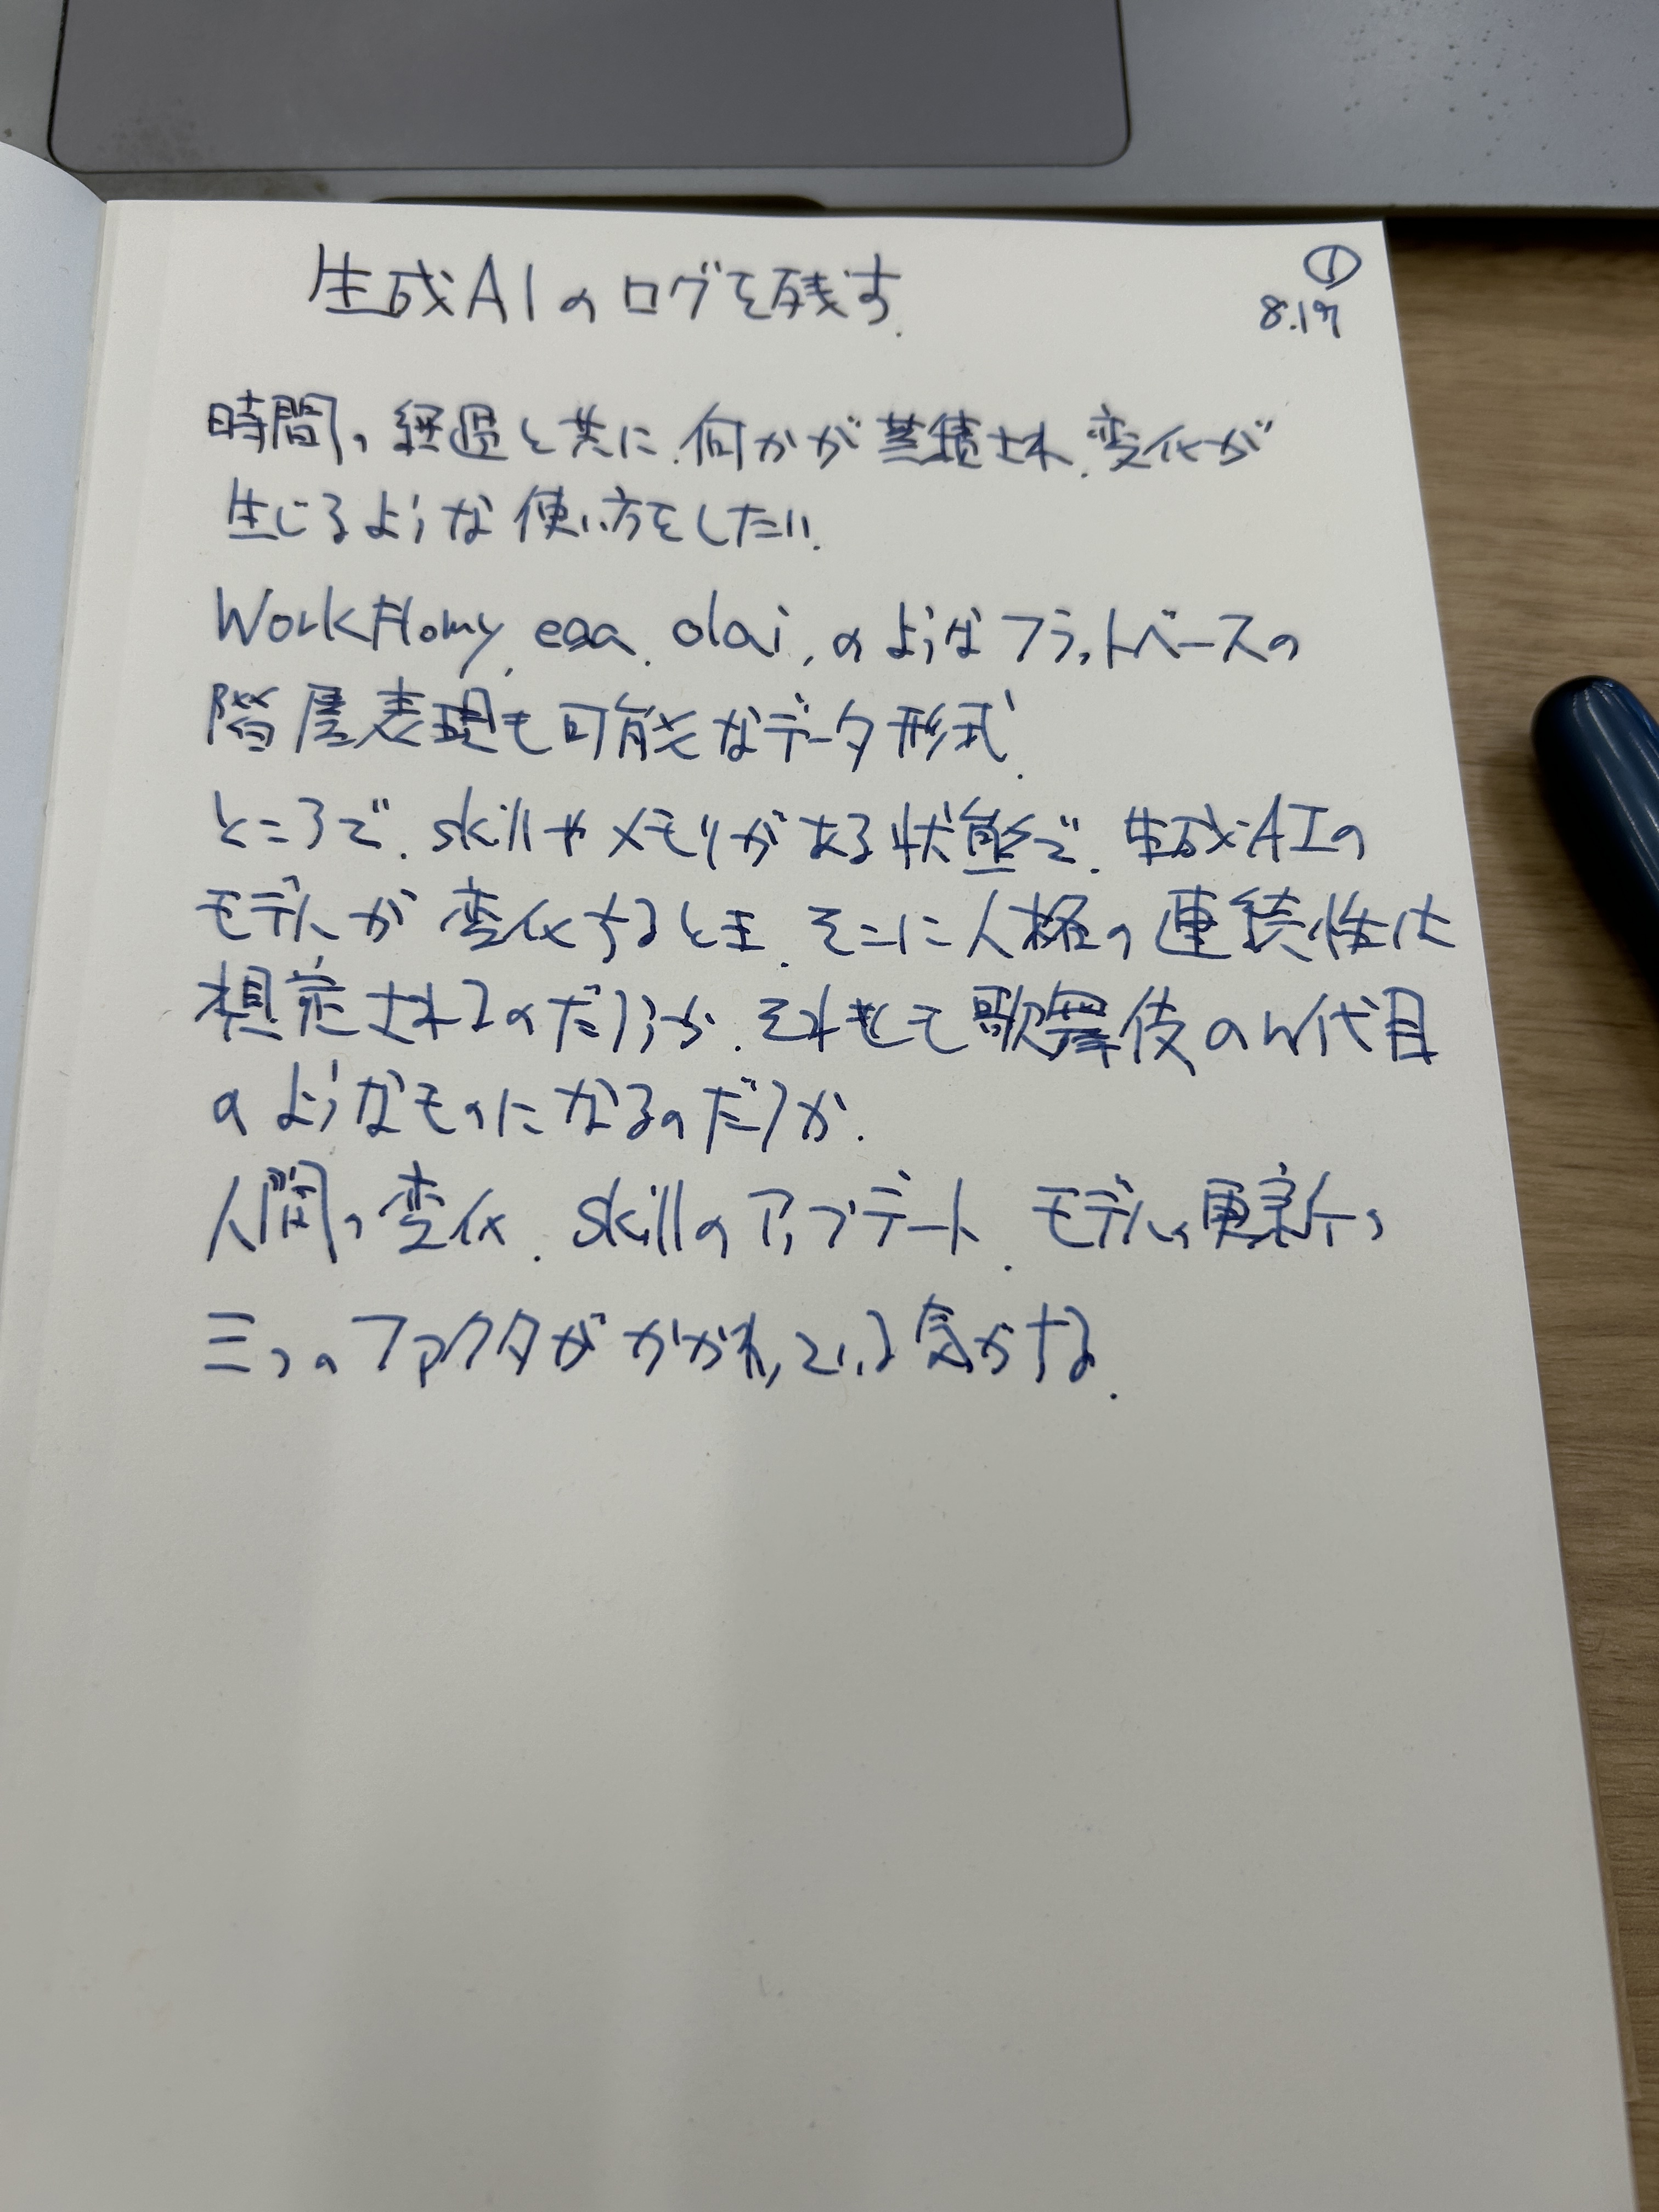 生成AIのログを残す.
①
8.19
時間の経過と共に、何かが蓄積され、変化が
生じるような使い方をしたい.
WorkFlowy, eaa, olai, のようなフラットベースの
階層表現も可能なデータ形式.
ところで、skillやメモリがある状態で、生成AIの
モデルが変化するとき、そこに人格の連続性は
想定されるのだろうか、それとも歌舞伎のn代目
のようなものになるのだろうか.
人間の変化、skillのアップデート、モデルの更新の
三つのファクタがかかわっている気がする.